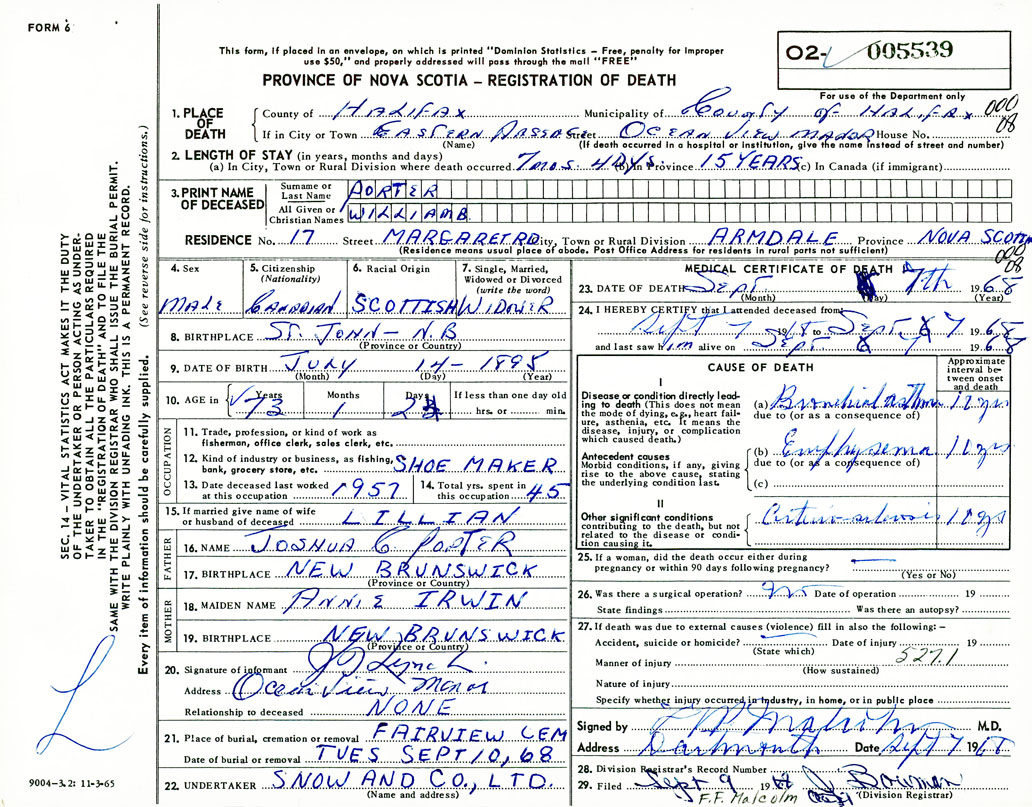 FORM 6
This form, if placed in an envelope, on which is printed "Dominion Statistics – Free, penalty for improper
use $50," and properly addressed will pass through the mail "FREE"
PROVINCE OF NOVA SCOTIA – REGISTRATION OF DEATH
02- 005539
For use of the Department only
000
08
1. PLACE OF DEATH
County of HALIFAX Municipality of County of HALIFAX
If in City or Town EASTERN PASSAGE Street OCEAN VIEW MANOR House No.
(Name) (If death occurred in a hospital or institution, give the name instead of street and number)
2. LENGTH OF STAY (in years, months and days)
(a) In City, Town or Rural Division where death occurred 7 mos. 4 DAYS. (b) In Province 15 YEARS (c) In Canada (if immigrant)
3. PRINT NAME OF DECEASED
Surname or Last Name PORTER
All Given or Christian Names WILLIAM B.
RESIDENCE No. 17 Street MARGARET RD City, Town or Rural Division ARMDALE Province NOVA SCOTIA
(Residence means usual place of abode. Post Office Address for residents in rural parts not sufficient)
000
08
4. Sex
MALE
5. Citizenship (Nationality)
CANADIAN
6. Racial Origin
SCOTTISH
7. Single, Married, Widowed or Divorced (write the word)
WIDOWER
8. BIRTHPLACE ST. JOHN – N.B
(Province or Country)
9. DATE OF BIRTH JULY 14 – 1895
(Month) (Day) (Year)
10. AGE in Years 73 Months 1 Days If less than one day old hrs. or min.
OCCUPATION
11. Trade, profession, or kind of work as fisherman, office clerk, sales clerk, etc.
12. Kind of industry or business, as fishing, bank, grocery store, etc. SHOE MAKER
13. Date deceased last worked at this occupation 1957
14. Total yrs. spent in this occupation 45
15. If married give name of wife or husband of deceased LILLIAN
FATHER
16. NAME JOSHUA C PORTER
17. BIRTHPLACE NEW BRUNSWICK
(Province or Country)
MOTHER
18. MAIDEN NAME ANNIE IRWIN
19. BIRTHPLACE NEW BRUNSWICK
(Province or Country)
20. Signature of informant Lynch
Address Ocean View Manor
Relationship to deceased NONE
21. Place of burial, cremation or removal FAIRVIEW CEM
Date of burial or removal TUES SEPT 10, 68
22. UNDERTAKER SNOW AND CO., LTD.
(Name and address)
MEDICAL CERTIFICATE OF DEATH
23. DATE OF DEATH Sept 7th 1968
(Month) (Day) (Year)
24. I HEREBY CERTIFY that I attended deceased from
Sept 7 1968 to Sept 7 1968
and last saw him alive on Sept 7 1968
CAUSE OF DEATH
Approximate interval between onset and death
I
Disease or condition directly leading to death (This does not mean the mode of dying, e.g., heart failure, asthenia, etc. It means the disease, injury, or complication which caused death.)
(a) Bronchial asthma 12 yrs
due to (or as a consequence of)
Antecedent causes
Morbid conditions, if any, giving rise to the above cause, stating the underlying condition last.
(b) Emphysema 11 yrs
due to (or as a consequence of)
(c)
II
Other significant conditions
contributing to the death, but not related to the disease or condition causing it.
Arterio-sclerosis 10 yrs
25. If a woman, did the death occur either during pregnancy or within 90 days following pregnancy?
(Yes or No)
26. Was there a surgical operation? no Date of operation 19
State findings Was there an autopsy?
27. If death was due to external causes (violence) fill in also the following: –
Accident, suicide or homicide? Date of injury 19
(State which) 527.1
Manner of injury
(How sustained)
Nature of injury
Specify whether injury occurred in industry, in home, or in public place
Signed by Malcolm M.D.
Address Dartmouth Date Sept 7 1968
28. Division Registrar's Record Number
29. Filed Sept 9 1968 J. Bowman
F.F. Malcolm (Division Registrar)
SEC. 14 – VITAL STATISTICS ACT MAKES IT THE DUTY
OF THE UNDERTAKER OR PERSON ACTING AS UNDER-
TAKER TO OBTAIN ALL THE PARTICULARS REQUIRED
IN THE "REGISTRATION OF DEATH" AND TO FILE THE
SAME WITH THE DIVISION REGISTRAR WHO SHALL ISSUE THE BURIAL PERMIT.
WRITE PLAINLY WITH UNFADING INK. THIS IS A PERMANENT RECORD.
Every item of information should be carefully supplied. (See reverse side for instructions.)
9004–3.2: 11-3-65